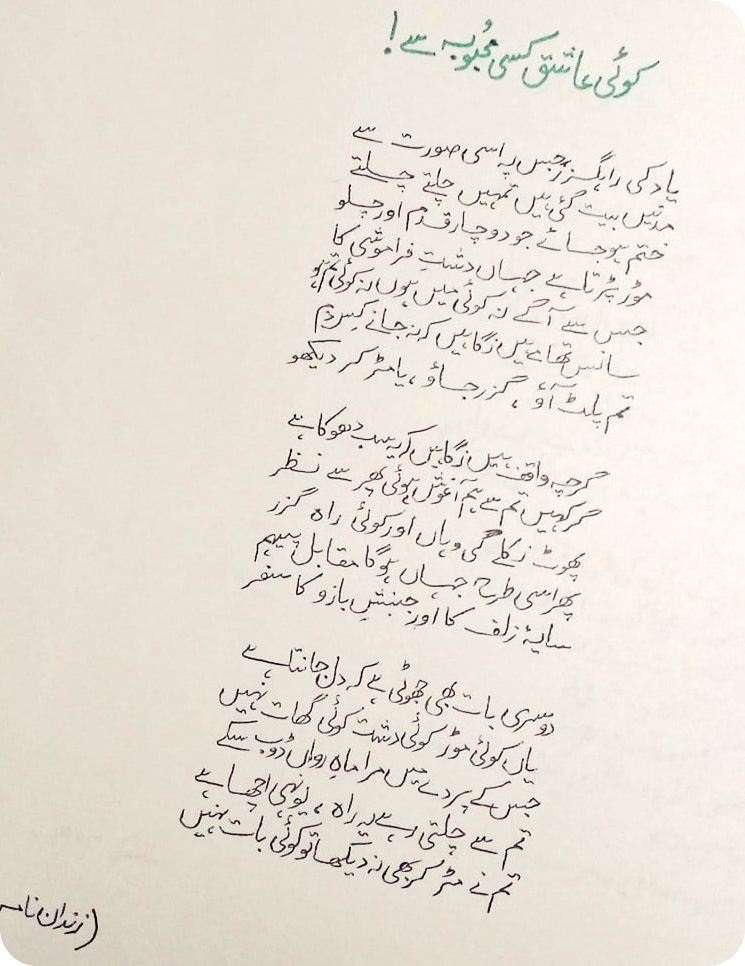 کوئی عاشق کسی محبوبہ سے!
یاد کی راہگزر جس پہ اسی صورت سے
مدتیں بیت گئی ہیں تمہیں چلتے چلتے
ختم ہو جائے جو دو چار قدم اور چلو
موڑ پڑتا ہے جہاں دشتِ فراموشی کا
جس سے آگے نہ کوئی میں ہوں نہ کوئی تم ہو
سانس تھامے ہیں نگاہیں کہ نہ جانے کس دم
تم پلٹ آؤ، گزر جاؤ، یا مڑ کر دیکھو
گرچہ واقف ہیں نگاہیں کہ یہ سب دھوکا ہے
گر کہیں تم سے ہم آغوش ہوئی پھر سے نظر
پھوٹ نکلے گی وہاں اور کوئی راہ گزر
پھر اسی طرح جہاں ہوگا مقابل پیہم
سایۂ زلف کا اور جنبشِ بازو کا سفر
دوسری بات بھی جھوٹی ہے کہ دل جانتا ہے
یاں کوئی موڑ کوئی دشت کوئی گھات نہیں
جس کے پردے میں مرا ماہِ رواں ڈوب سکے
تم سے چلتی رہے یہ راہ، یونہی اچھا ہے
تم نے مڑ کر بھی نہ دیکھا تو کوئی بات نہیں
(زندان نامہ